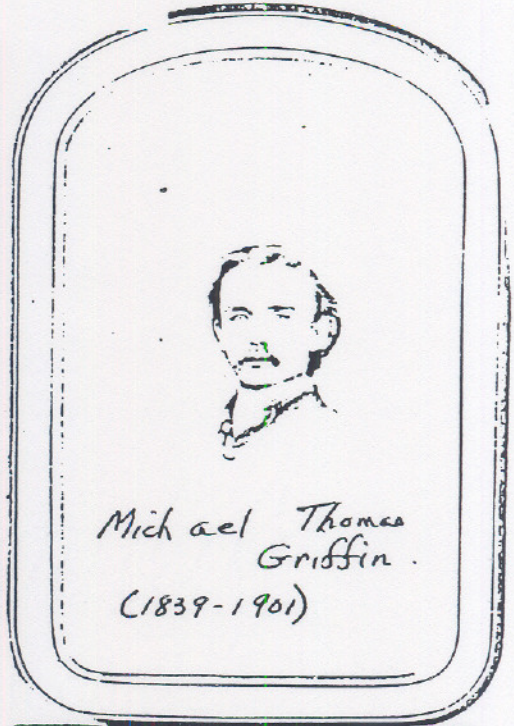 Michael Thomas
Griffin.
(1839-1901)